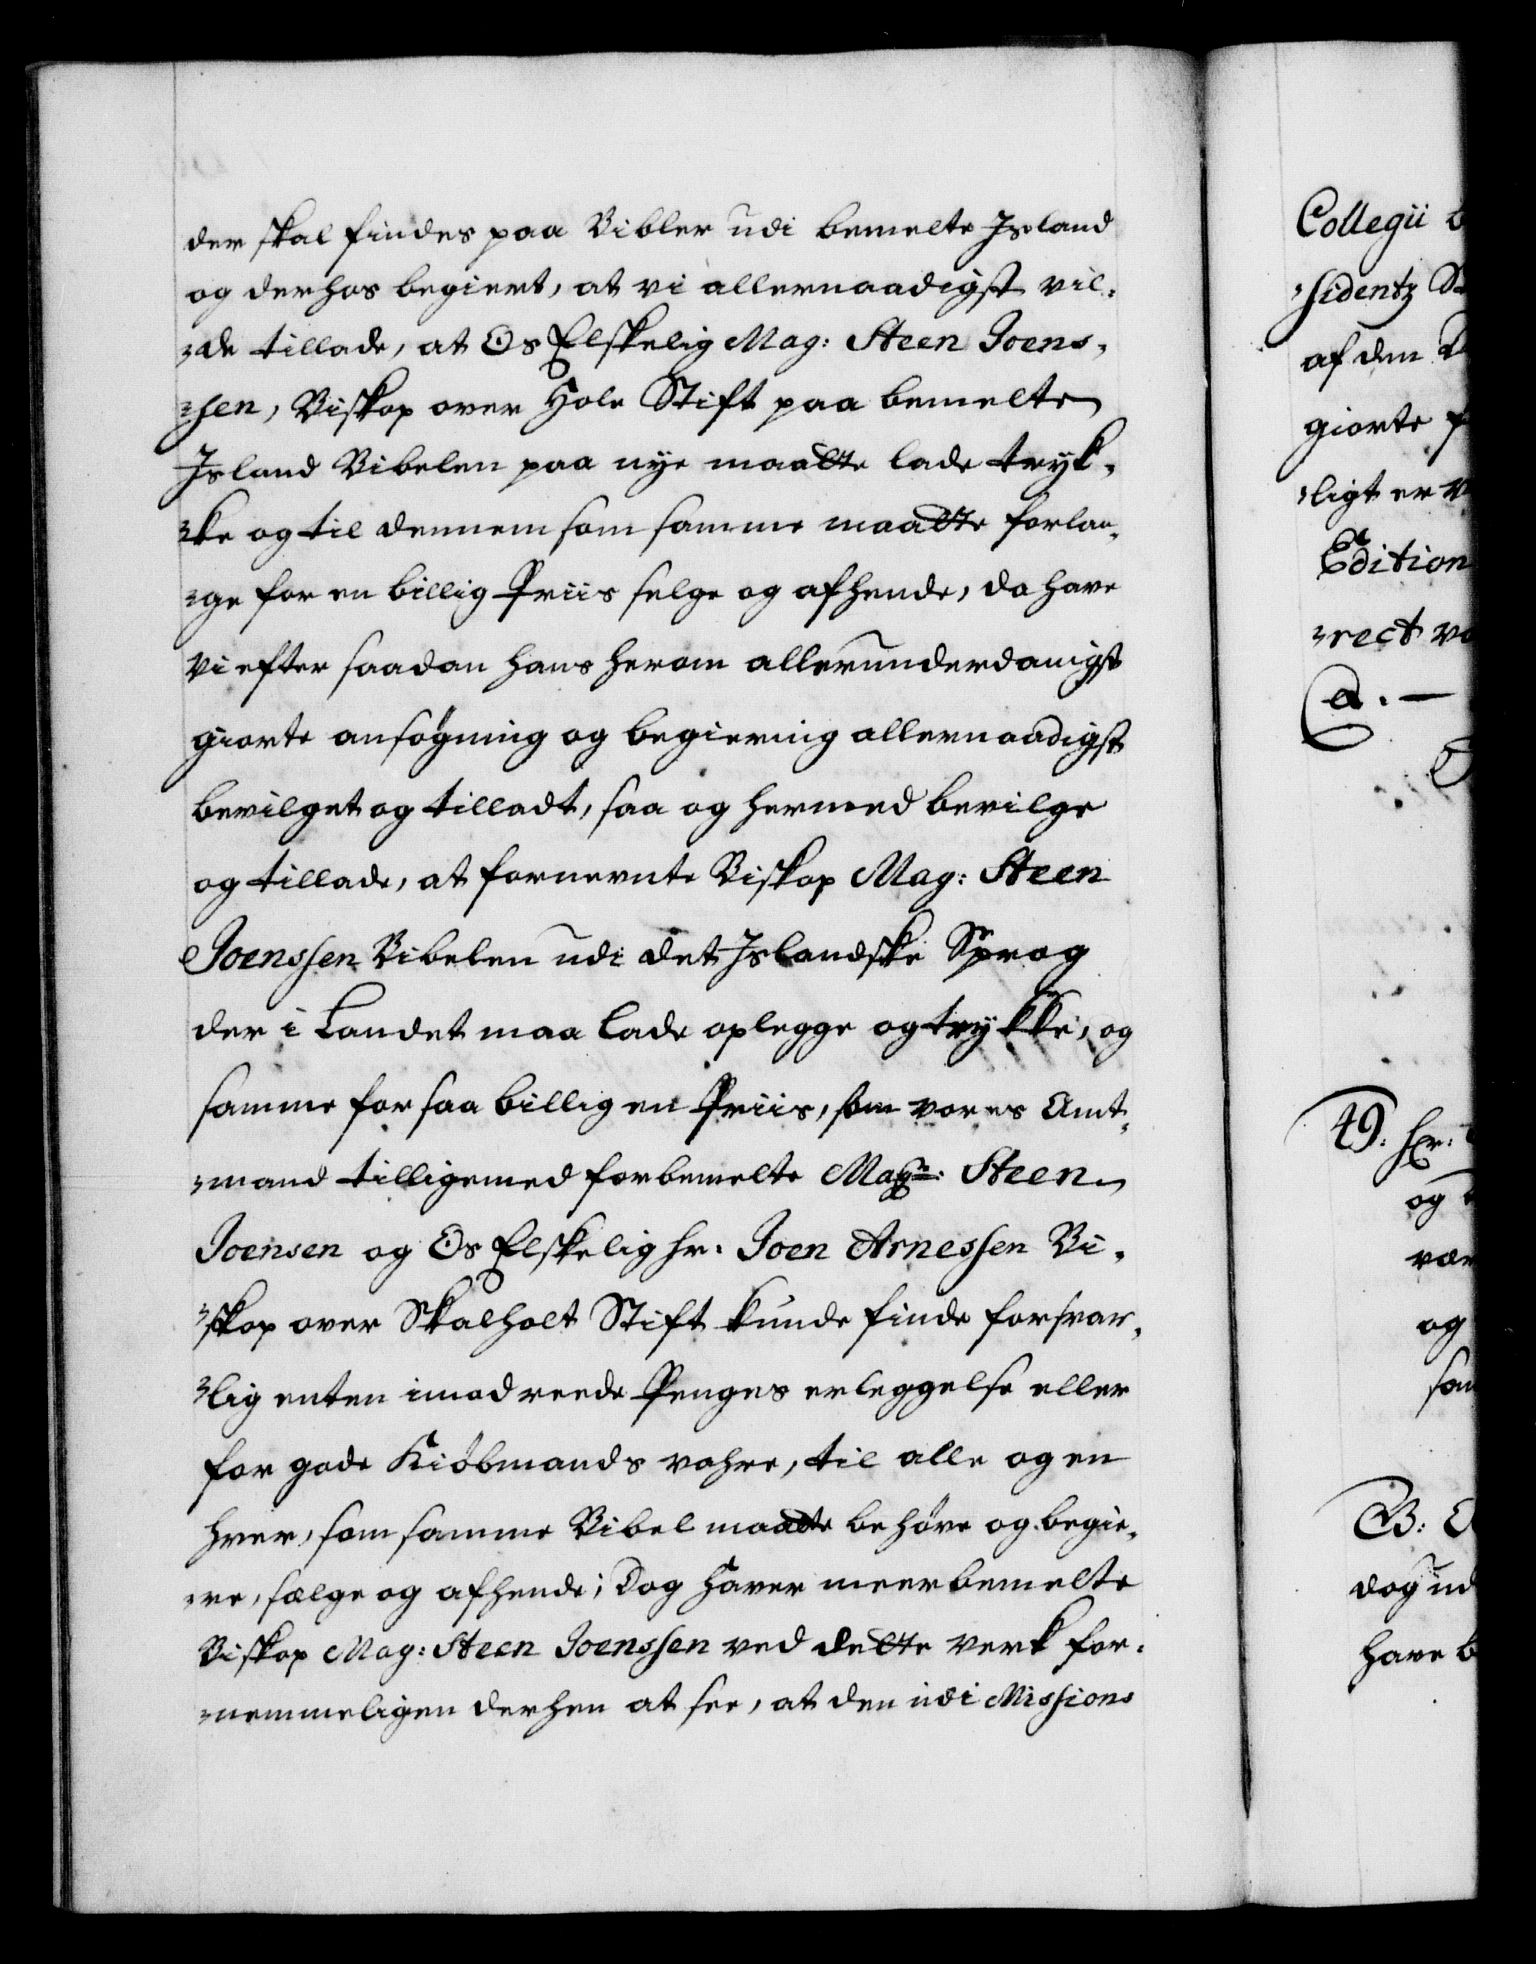 der skal findes paa Bibler udi bemelte Jsland
og derhos begiert, at vi allernaadigst vil-
-de tillade, at Os Elskelig Mag: Steen Joens-
-sen, Biskop over Hole Stift paa bemelte
Jsland Bibelen paa nye maatte lade tryk-
-ke og til dennem som samme maatte forlan-
-ge for en billig Priis selge og afhende, da have
Vi efter saadan hans herom allerunderdanigst
giorte ansøgning og begiering allernaadigst
bevilget og tilladt, saa og hermed bevilge
og tillade, at fornevnte Biskop Mag: Steen
Joenssen Bibelen udi det Jslandske Sprog
der i Landet maa lade oplegge og trykke, og
samme for saa billig en Priis, som vores Amt-
-mand tilligemed forbemelte Magr: Steen
Joensen og Os Elskelig Hr. Joen Arnessen Bi-
-skop over Skalholt Stift kunde finde forsvar-
-lig enten imod reede Penges erleggelse eller
for gode Kiöbmands vahre, til alle og en
hver, som samme Bibel maatte behøve og begie-
-re, sælge og afhende; Dog haver meerbemelte
Biskop Mag: Steen Joenssen ved dette verk for-
-nemmeligen derhen at see, at den udi Missions
Collegii
-sidentz
af den
giorte
-ligt er
Edition
-rect
a. —
49. Hr:
og
vær
og
sam
B:
dog ud
have